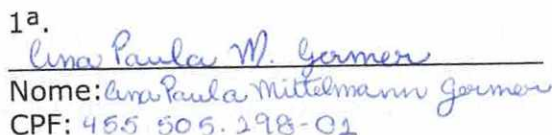 1ª.
Ana Paula M. Germer
Nome: Ana Paula Mittelmann Germer
CPF: 455 505.298-02